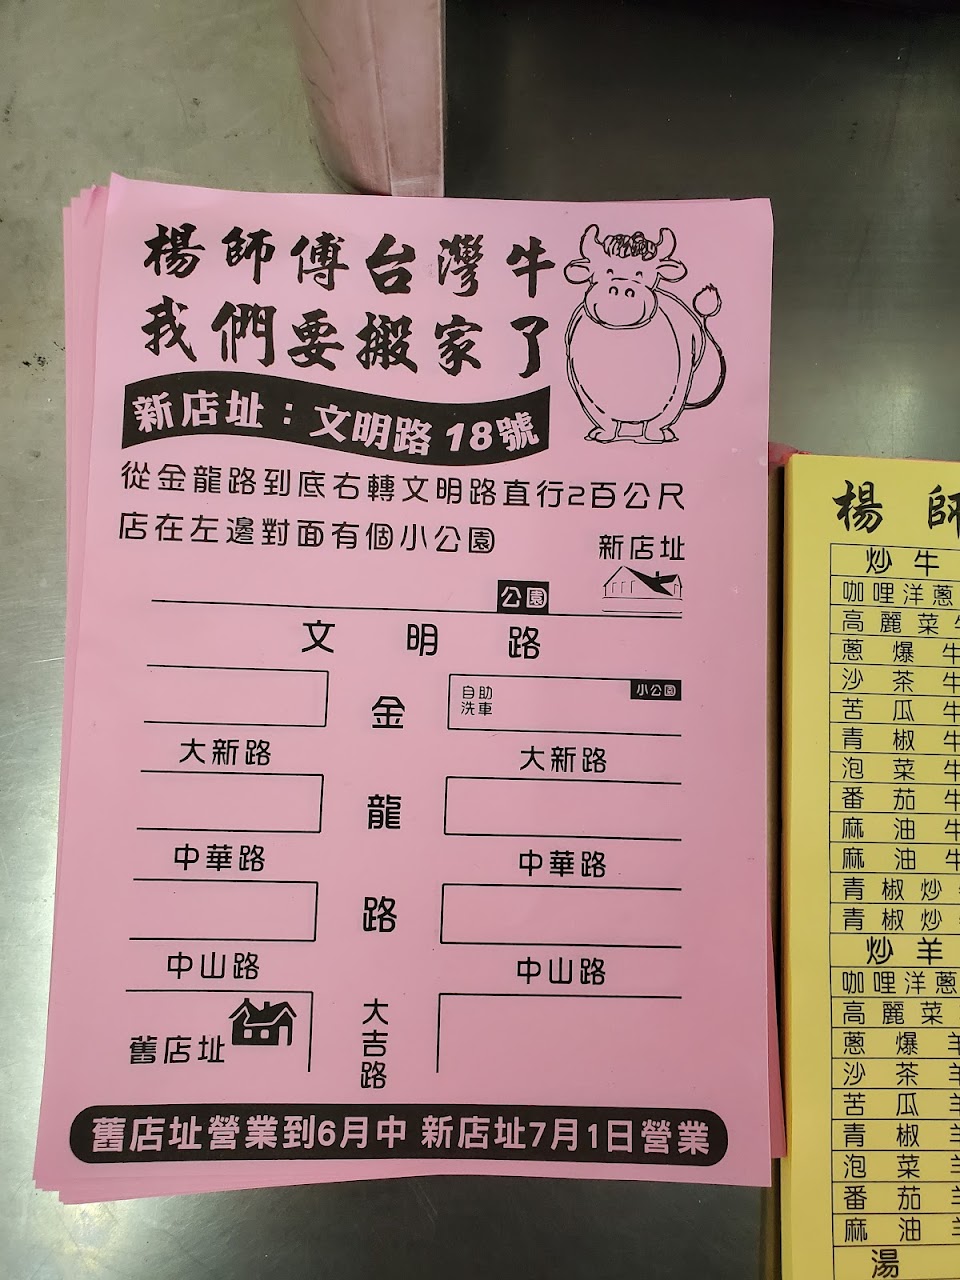 楊師傅台灣牛
我們要搬家了
新店址：文明路 18號
從金龍路到底右轉文明路直行2百公尺
店在左邊對面有個小公園
新店址
公園
文明路
金龍路
自助
洗車
小公園
大新路
大新路
中華路
中華路
中山路
中山路
大吉路
舊店址
舊店址營業到6月中 新店址7月1日營業
楊師
炒牛
咖哩洋蔥
高麗菜牛
蔥爆牛
沙茶牛
苦瓜牛
青椒牛
泡菜牛
番茄牛
麻油牛
麻油牛
青椒炒
青椒炒
炒羊
咖哩洋蔥
高麗菜
蔥爆羊
沙茶羊
苦瓜羊
青椒羊
泡菜羊
番茄羊
麻油羊
湯